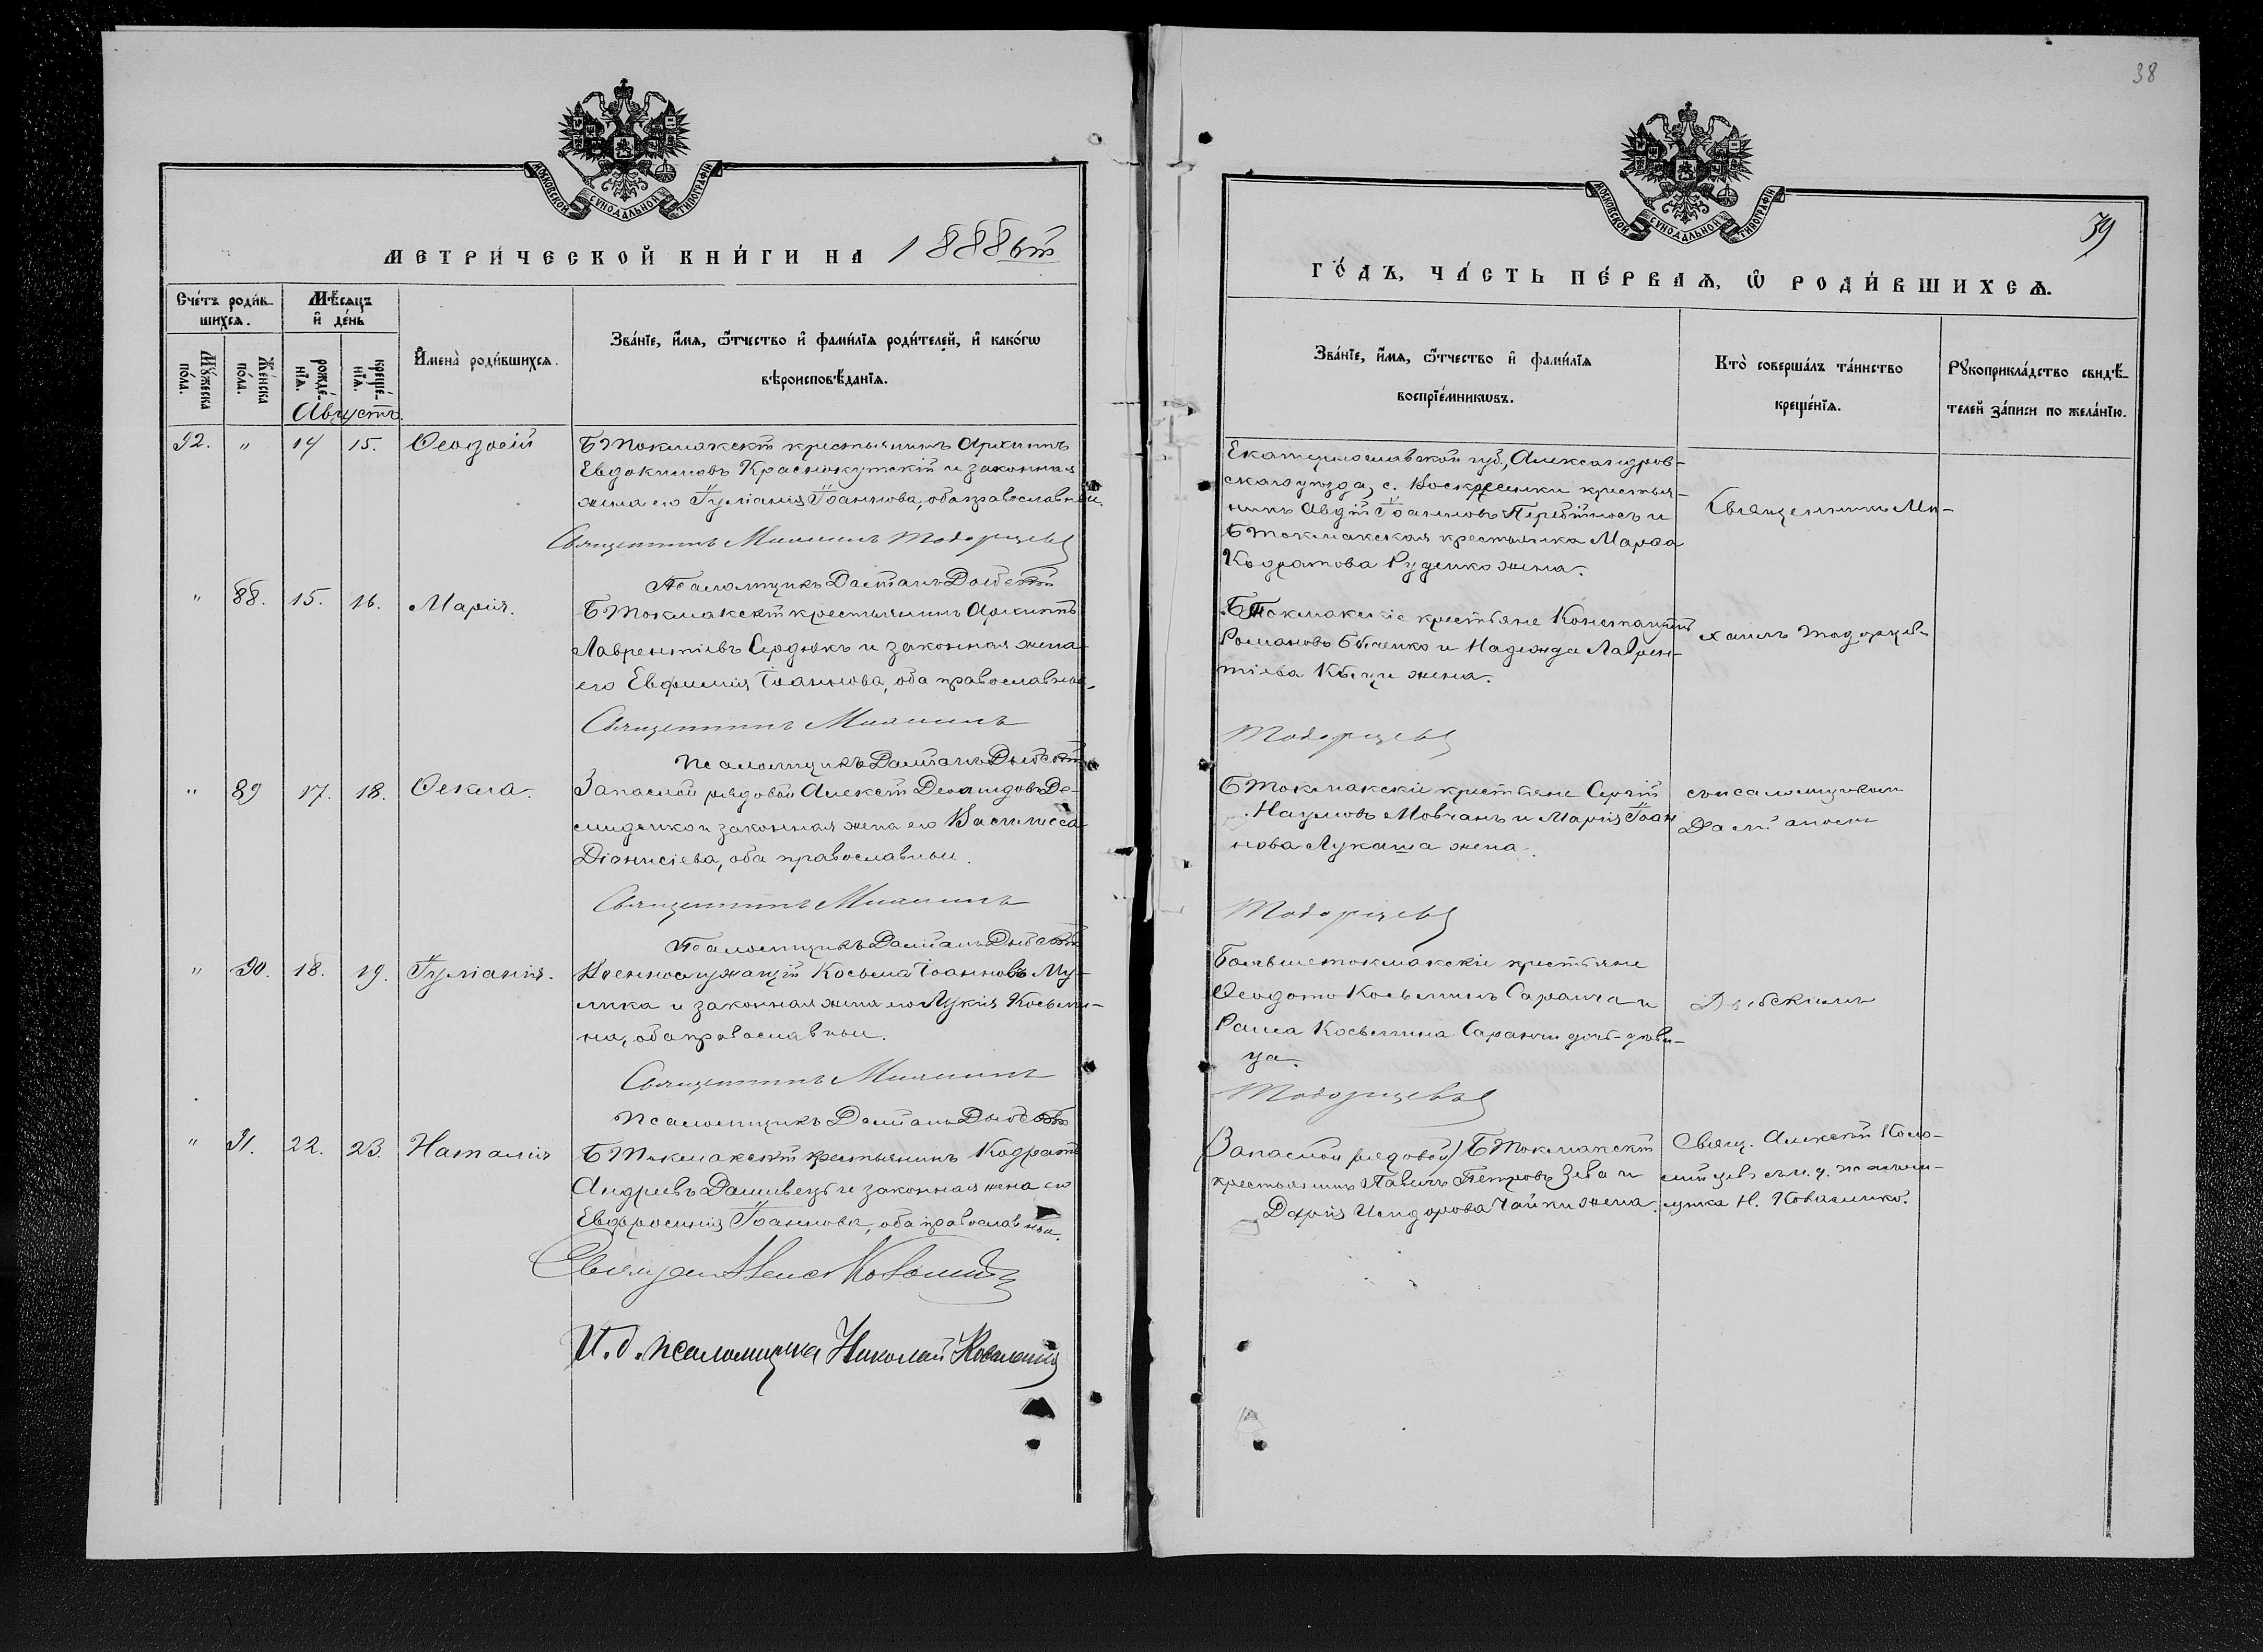 38
МОСКОВСКОЙ СѴНОДАЛЬНОЙ ТИПОГРАФІИ
МЕТРИ́ЧЕСКОЙ КНИ́ГИ НА 1888ой
Сче́тъ роди́в-
шихся.
Мѣ́сяцъ
и҆ де́нь
Мꙋ́жеска
по́ла.
Же́нска
по́ла.
рожде́-
нїѧ.
креще́-
нїѧ.
И҆мена̀ роди́вшихсѧ.
Зва́нїе, и҆́мѧ, ѻ҆́тчество и҆ фами́лїѧ роди́телей, и҆ како́гѡ
вѣроисповѣ́данїѧ.
Августъ.
92. " 14 15. Ѳеодосій
Б Токмакскій крестьянинъ Архиппъ
Евдокимовъ Краснокутскій и законная
жена его Іуліанія Іоаннова, оба православные.
Священникъ Михаилъ Тодорцевъ
Псаломщикъ Даміанъ
" 88. 15. 16. Марія.
Б Токмакскій крестьянинъ Архиппъ
Лаврентіевъ Сердюкъ и законная жена
его Евфимія Іоаннова, оба православные.
Священникъ Михаилъ
Псаломщикъ Даміанъ
" 89 17. 18. Ѳекла.
Запасной рядовой Алексій Деомидовъ Де-
миденко и законная жена его Василисса
Діонисіева, оба православные.
Священникъ Михаилъ
Псаломщикъ Даміанъ
" 90. 18. 19. Іуліанія.
Военнослужащій Косьма Іоанновъ Му-
лика и законная жена его Лукія Косьми-
на, оба православные.
Священникъ Михаилъ
Псаломщикъ Даміанъ
" 91. 22. 23. Наталія
Б Токмакскій крестьянинъ Кодратъ
Андреевъ Дашивецъ и законная жена его
Евфросинія Іоаннова, оба православные.
Священ Алекс
И. д. псаломщика Николай Коваленко
МОСКОВСКОЙ СѴНОДАЛЬНОЙ ТИПОГРАФІИ
39
ГО́ДЪ, ЧА́СТЬ ПЕ́РВАѦ, Ѡ РОДИ́ВШИХСѦ.
Зва́нїе, и҆́мѧ, ѻ҆́тчество и҆ фами́лїѧ
воспрїе́мникѡвъ.
Кто̀ соверша́лъ та́инство
креще́нїѧ.
Рꙋкоприкла́дство свидѣ́-
телей за́писи по жела́нїю.
Екатеринославской губ., Александров-
скаго уѣзда, с. Воскресенки крестья-
нинъ Авдій Іоанновъ Перебійносъ и
Б Токмакская крестьянка Марѳа
Кодратова Руденко жена.
Священникъ Ми-
Б Токмакскіе крестьяне Константинъ
Романовъ Бѣленко и Надежда Лаврен-
тіева жена.
хаилъ Тодорцевъ
Тодорцевъ
Б Токмакскіе крестьяне Сергій
Наумовъ Мовчанъ и Марія Іоан
нова Лукаша жена.
съ псаломщикомъ
Даміаномъ
Тодорцевъ
Большетокмакскіе крестьяне
Ѳеодотъ Косьминъ Саранча и
Раиса Косьмина Саранчи дочь-дѣви-
ца.
Тодорцевъ
(Запасной рядовой) Б Токмакскій
крестьянинъ Павелъ Петровъ Зѣва и
Дарія Исидорова Чайки жена.
Свящ. Алексій Коло-
мійцевъ съ и. д. псалом-
щика Н. Коваленко.